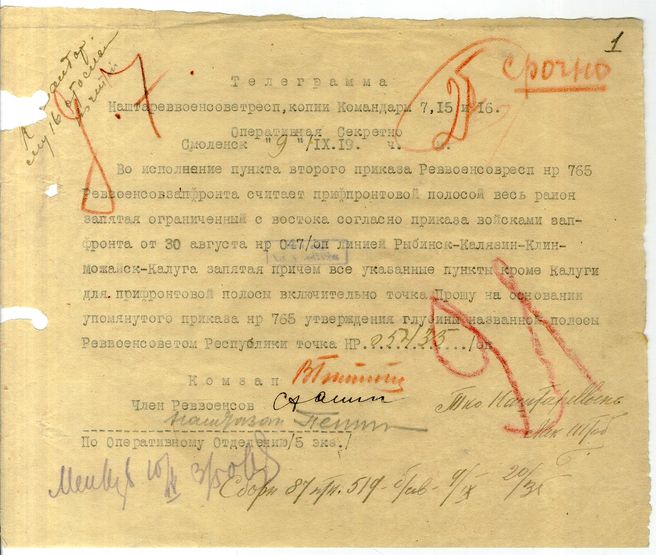 1
срочно
Телеграмма
Наштареввоенсоветресп, копии Командарм 7, 15 и 16.
Оперативная Секретно
Смоленск "9"/IX.19. ч. м.
Во исполнение пункта второго приказа Реввоенсовресп нр 765
Реввоенсовзапфронта считает прифронтовой полосой весь район
запятая ограниченный с востока согласно приказа войсками зап-
фронта от 30 августа нр 047/оп линией Рыбинск-Калязин-Клин-
Можайск-Калуга запятая причем все указанные пункты кроме Калуги
для прифронтовой полосы включительно точка Прошу на основании
упомянутого приказа нр 765 утверждения глубины названной полосы
Реввоенсоветом Республики точка НР. /оп
Комзап
Член Реввоенсов Сталин
Наштазап
По Оперативному Отделению/5 экз./